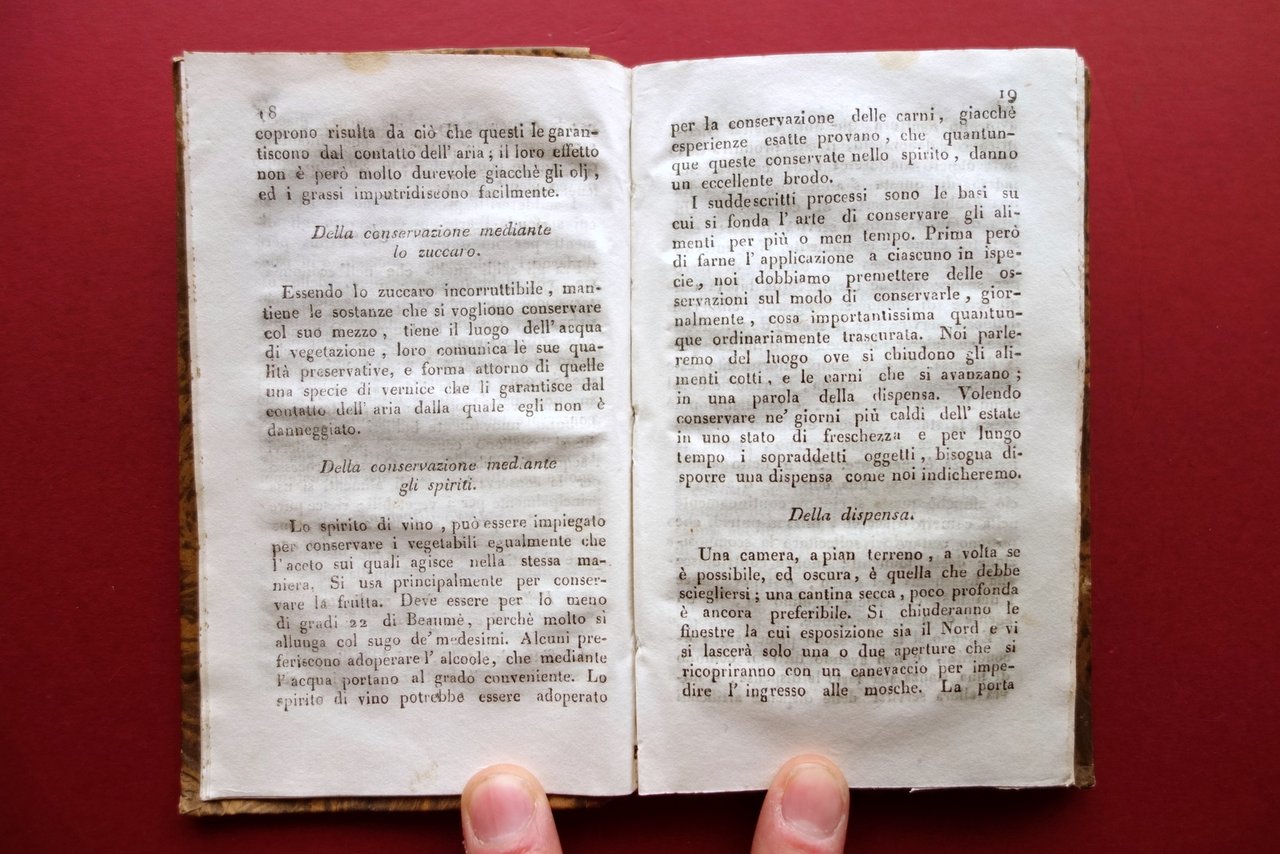 18
coprono risulta da ciò che questi le garan-
tiscono dal contatto dell' aria; il loro effetto
non è però molto durevole giacchè gli olj,
ed i grassi imputridiscono facilmente.
Della conservazione mediante
lo zuccaro.
Essendo lo zuccaro incorruttibile, man-
tiene le sostanze che si vogliono conservare
col suo mezzo, tiene il luogo dell' acqua
di vegetazione, loro comunica lè sue qua-
lità preservative, e forma attorno di quelle
una specie di vernice che li garantisce dal
contatto dell' aria dalla quale egli non è
danneggiato.
Della conservazione mediante
gli spiriti.
Lo spirito di vino, può essere impiegato
per conservare i vegetabili egualmente che
l'aceto sui quali agisce nella stessa ma-
niera. Si usa principalmente per conser-
vare la frutta. Deve essere per lo meno
di gradi 22 di Beaumè, perchè molto si
allunga col sugo de' medesimi. Alcuni pre-
feriscono adoperare l' alcoole, che mediante
l'acqua portano al grado conveniente. Lo
spirito di vino potrebbe essere adoperato
19
per la conservazione delle carni, giacchè
esperienze esatte provano, che quantun-
que queste conservate nello spirito, danno
un eccellente brodo.
I suddescritti processi sono le basi su
cui si fonda l' arte di conservare gli ali-
menti per più o men tempo. Prima però
di farne l' applicazione a ciascuno in ispe-
cie, noi dobbiamo premettere delle os-
servazioni sul modo di conservarle, gior-
nalmente, cosa importantissima quantun-
que ordinariamente trascurata. Noi parle-
remo del luogo ove si chiudono gli ali-
menti cotti, e le carni che si avanzano;
in una parola della dispensa. Volendo
conservare ne' giorni più caldi dell' estate
in uno stato di freschezza e per lungo
tempo i sopraddetti oggetti, bisogna di-
sporre una dispensa come noi indicheremo.
Della dispensa.
Una camera, a pian terreno, a volta se
è possibile, ed oscura, è quella che debbe
sciegliersi; una cantina secca, poco profonda
è ancora preferibile. Si chiuderanno le
finestre la cui esposizione sia il Nord e vi
si lascerà solo una o due aperture che si
ricopriranno con un canevaccio per impe-
dire l' ingresso alle mosche. La porta